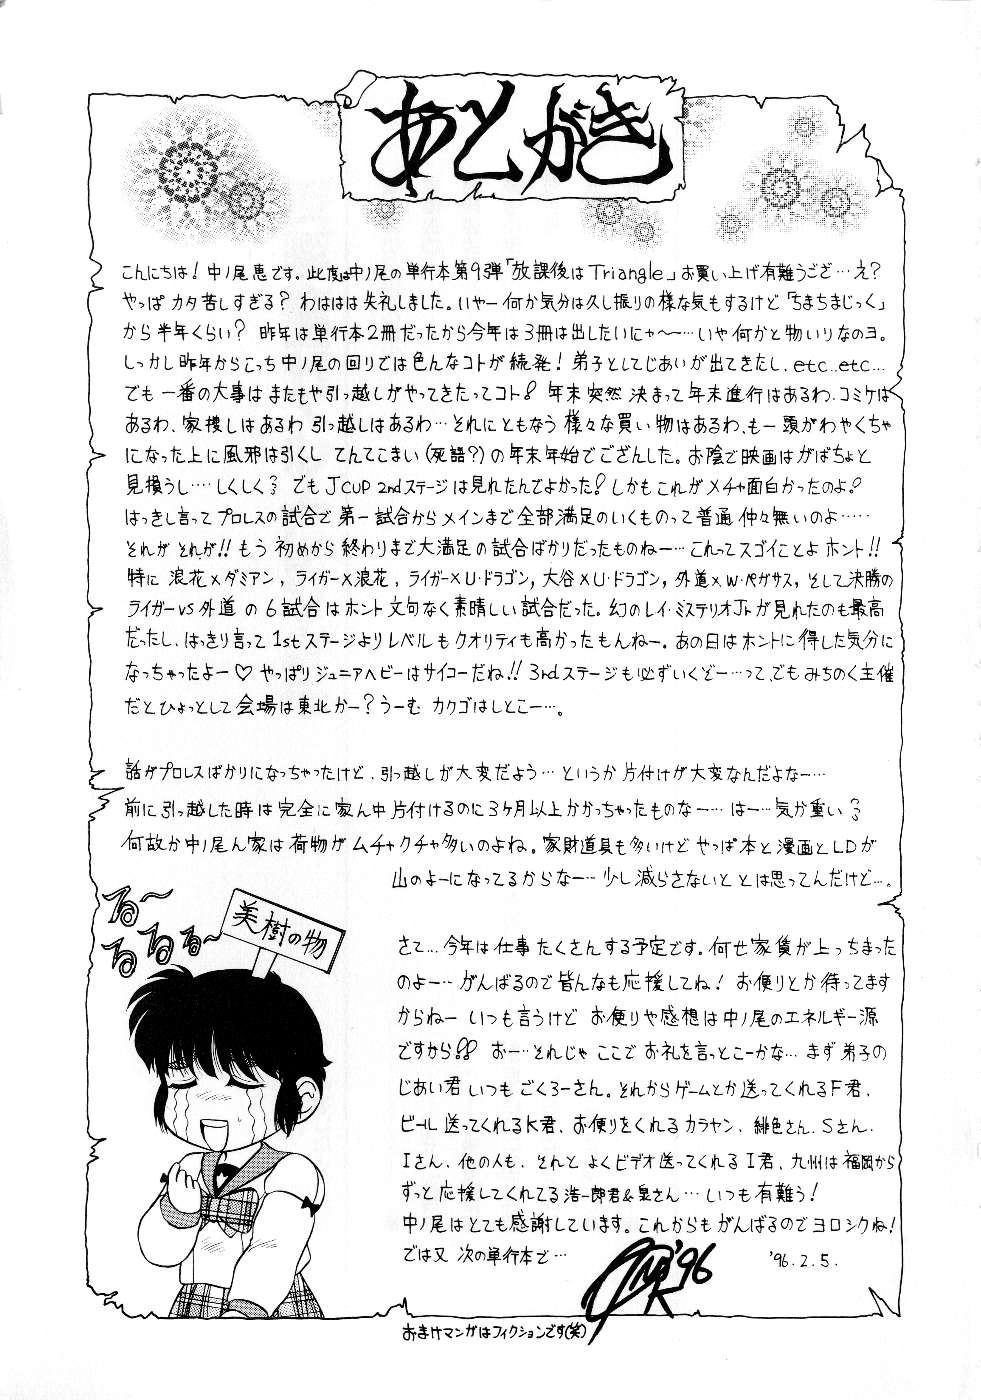 あとがき
こんにちは！中ノ尾恵です。此度は中ノ尾の単行本第9弾「放課後はTriangle」お買い上げ有難うござ…え？
やっぱ カタ苦しすぎる？わははは失礼しました。いやー何か気分は久し振りの様な気もするけど「ちまちまじっく」
から半年くらい？ 昨年は単行本2冊だったから今年は3冊は出したいにゃ〜…いや何かと物いりなのヨ。
しっかし昨年からこっち中ノ尾の回りでは色んなコトが続発！弟子としてじあいが出てきたし、etc..etc…
でも一番の大事はまたもや引っ越しがやってきたってコト！年末突然決まって年末進行はあるわ、コミケは
あるわ、家捜しはあるわ 引っ越しはあるわ…それにともなう様々な買い物はあるわ、も一頭がわやくちゃ
になった上に風邪は引くし てんてこまい（死語？）の年末年始でござんした。お陰で映画はがばちょと
見損うし….しくしく でもJ CUP 2ndステージは見れたんでよかった！しかもこれがメチャ面白かったのよ！
はっきし言ってプロレスの試合で第一試合からメインまで全部満足のいくものって普通仲々無いのよ…..
それが それが!!もう初めから終わりまで大満足の試合ばかりだったものねー…これってスゴイことよホント!!
特に 浪花×ダミアン, ライガー×浪花, ライガー×U・ドラゴン, 大谷×U・ドラゴン, 外道×W・ペガサス, そして決勝の
ライガーvs外道の6試合はホント文句なく素晴しい試合だった。幻のレイ・ミステリオJrが見れたのも最高
だったし、はっきり言って1stステージよりレベルもクオリティも高かったもんねー。あの日はホントに得した気分に
なっちゃったよー♡ やっぱりジュニアヘビーはサイコーだね!!3rdステージも必ずいくぞー…って、でもみちのく主催
だとひょっとして会場は東北かー？うーむ カクゴはしとこー…。
話がプロレスばかりになっちゃったけど、引っ越しが大変だよう…というか片付けが大変なんだよなー…
前に引っ越した時は完全に家ん中片付けるのに3ヶ月以上かかっちゃったものなー…はー…気が重い
何故か中ノ尾ん家は荷物がムチャクチャ多いのよね。家財道具も多いけど やっぱ本と漫画とLDが
山のよーになってるからなー…少し減らさないと とは思ってんだけど…。
る〜
るるる〜
美樹の物
さて…今年は仕事たくさんする予定です。何せ家賃が上っちまった
のよー…がんばるので皆んなも応援してね！お便りとか待ってます
からねー いつも言うけど お便りや感想は中ノ尾のエネルギー源
ですから!! おー…それじゃ ここでお礼を言っとこーかな…まず弟子の
じあい君 いつもごくろーさん。それからゲームとか送ってくれるF君、
ビール送ってくれるK君、お便りをくれるカラヤン、緋色さん、Sさん、
Iさん、他の人も、それと よくビデオ送ってくれるI君、九州は福岡から
ずっと応援してくれてる浩一郎君&泉さん…いつも有難う！
中ノ尾はとても感謝しています。これからもがんばるのでヨロシクね！
では又 次の単行本で…
'96
'96.2.5.
おまけマンガはフィクションです(笑)